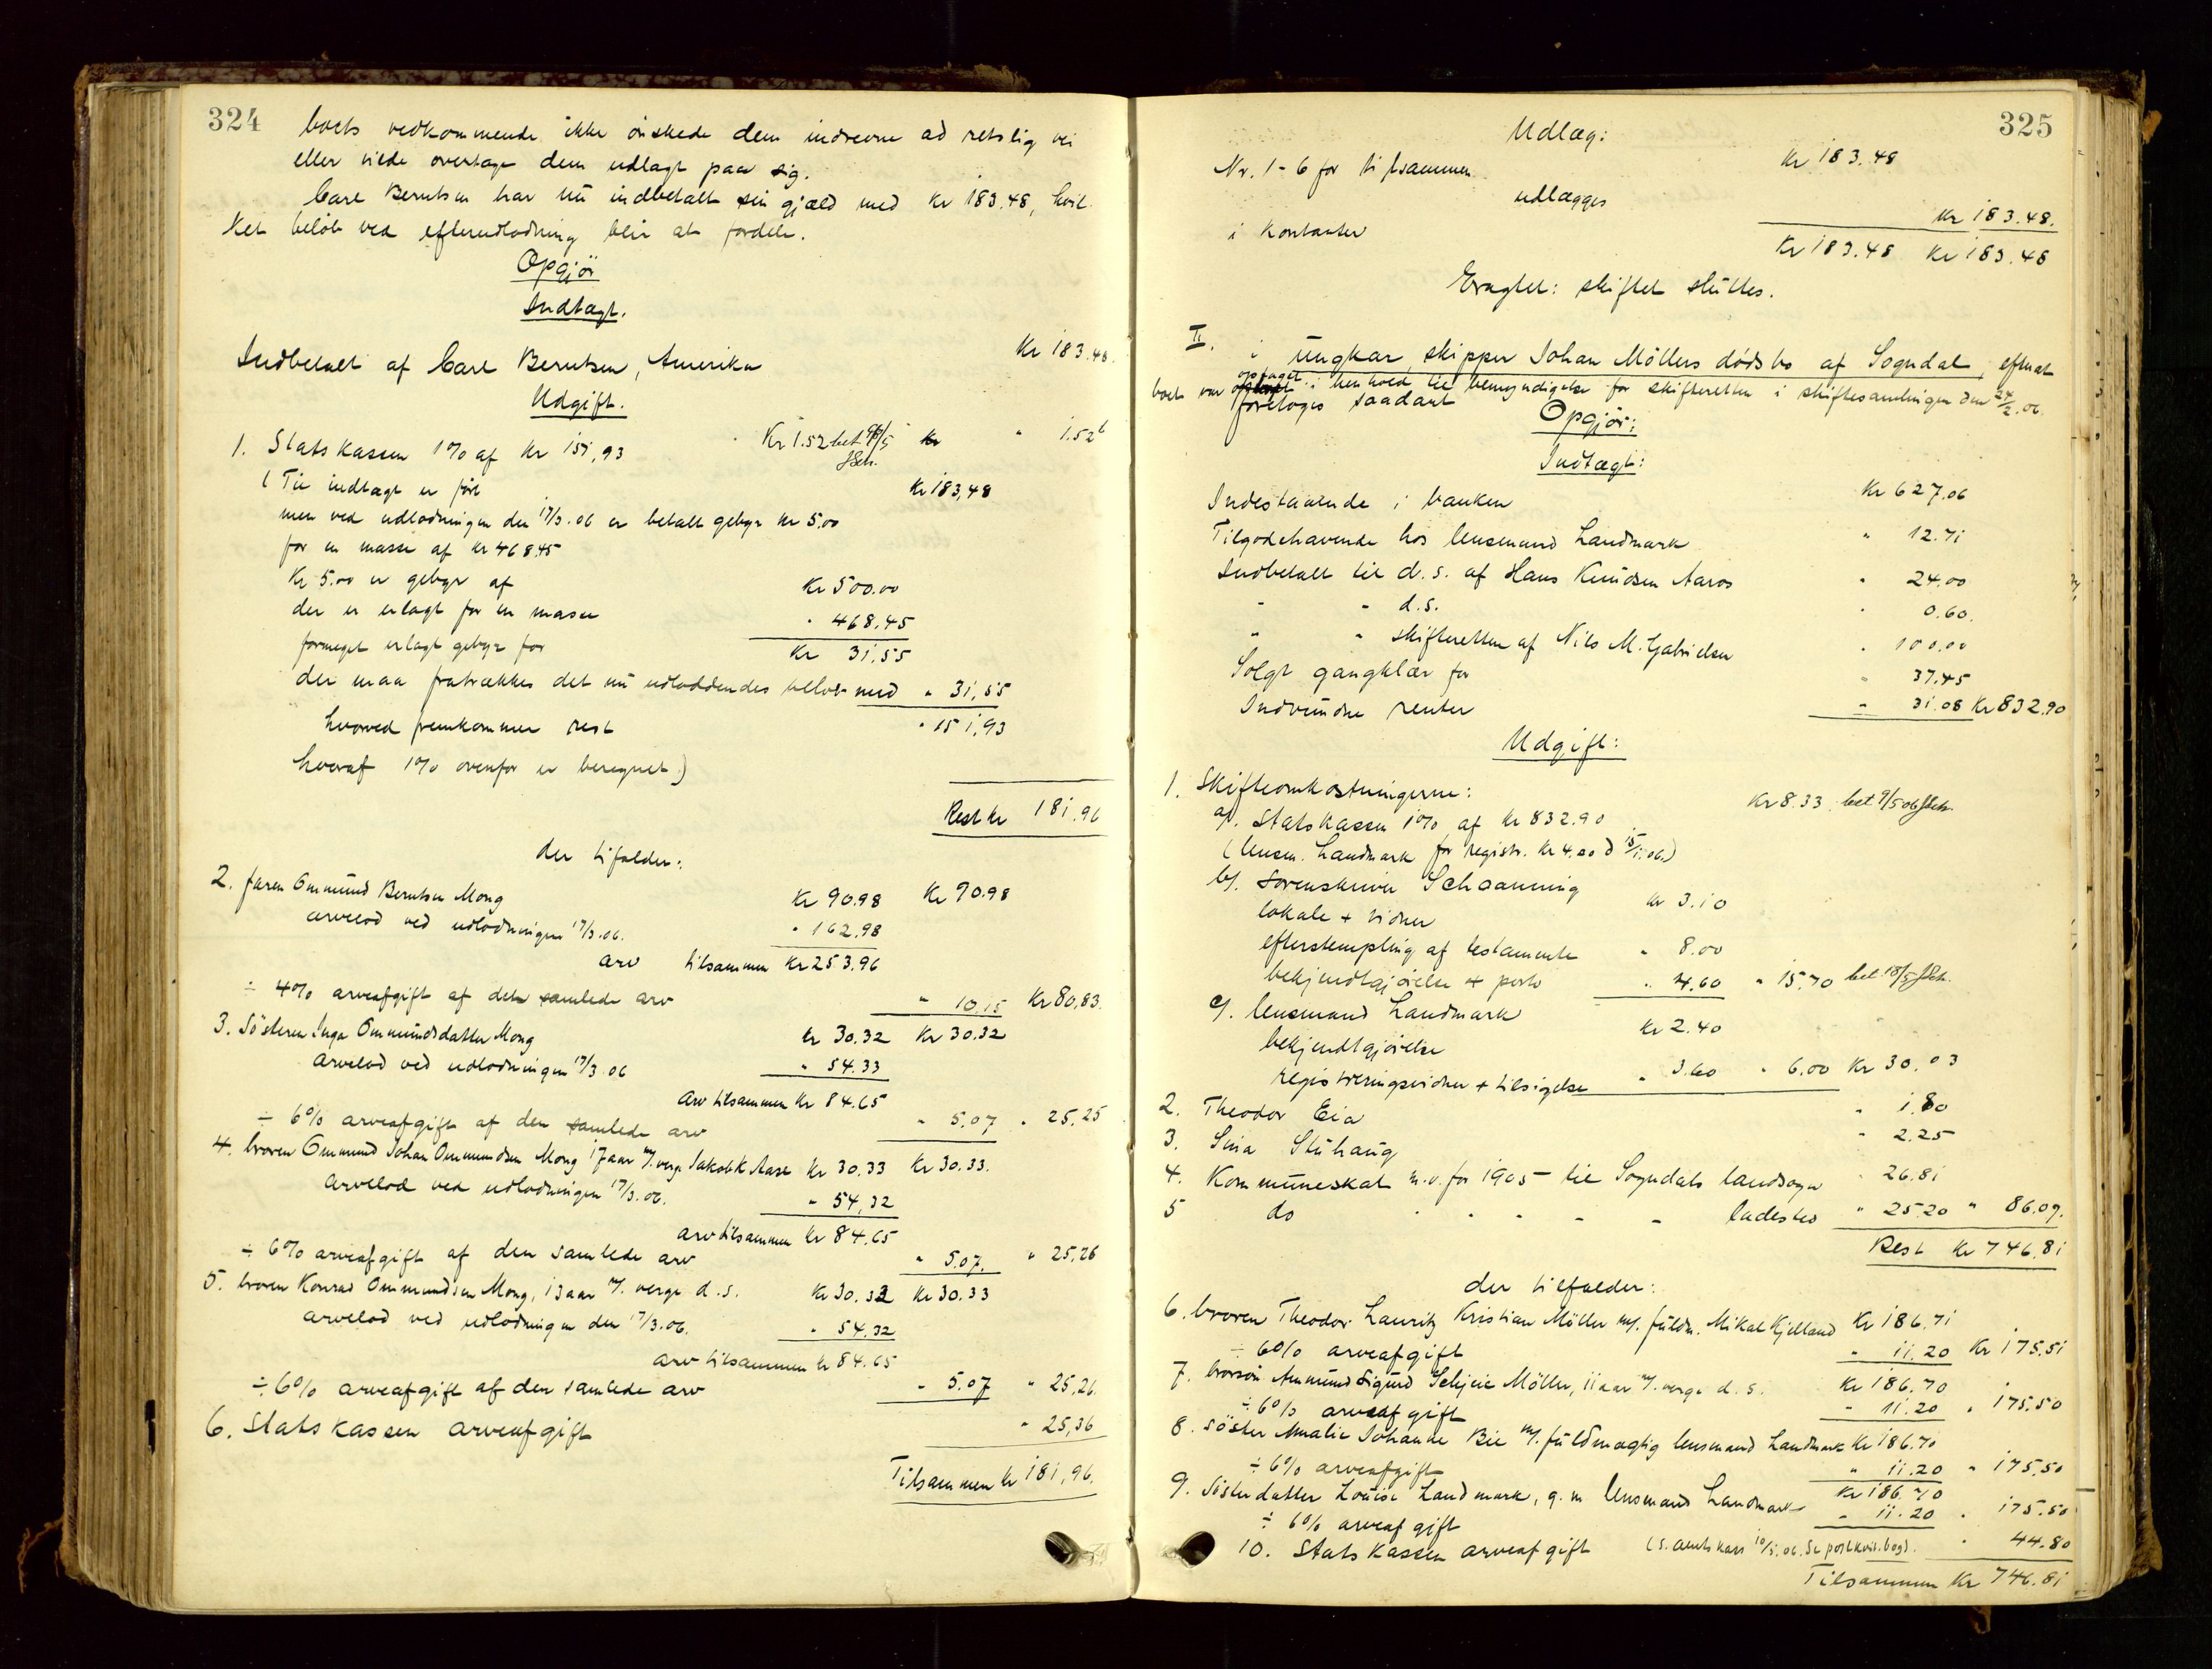 324
boets vedkommende ikke önskede dem inddrevne ad retslig vei
eller vilde overtage dem udlagt paa sig.
Carl Berntsen har nu indbetalt sin gjæld med Kr 183.48, hvil-
ket beløb ved efterudlodning blir at fordele.
Opgjör
Indtægt.
Indbetalt af Carl Berntsen, Amerika Kr 183.48.
Udgift.
1. Statskassen 1% af Kr 151,93 Kr 1.52 bet 9/5 Kr " 1.52
( Til indtægt er ført Kr 183,48
men ved udlodningen den 17/3.06 er betalt gebyr Kr 5.00
for en masse af Kr 468.45
Kr 5.00 er gebyr af Kr 500.00
der er erlagt for en masse " 468.45
formeget erlagt gebyr for Kr 31,55
der maa fratrækkes det nu udloddendes beløb med " 31,55
hvorved fremkommer rest " 151,93
hvoraf 1% ovenfor er beregnet)
Rest kr 181.96
der tilfalder:
2. faren Ommund Berntsen Mong Kr 90.98 Kr 90.98
arvelod ved udlodningen 17/3.06. " 162.98
arv tilsammen Kr 253.96
÷ 4% arveafgift af den samlede arv " 10.15 Kr 80.83.
3. Söstren Inga Ommundsdatter Mong kr 30.32 Kr 30.32
arvelod ved udlodningen 17/3.06 " 54.33
arv tilsammen Kr 84.65
÷ 6% arveafgift af den samlede arv " 5.07 " 25.25
4. broren Ommund Johan Ommundsen Mong 17 aar m/ verge Jakob K Aase Kr 30.33 Kr 30.33.
arvelod ved udlodningen 17/3.06. " 54,32
arv tilsammen kr 84.65
÷ 6% arveafgift af den samlede arv " 5.07. " 25,26
5. broren Konrad Ommundsen Mong, 13 aar m/ verge d.s. Kr 30.33 Kr 30.33
arvelod ved udlodningen den 17/3.06. " 54.32
arv tilsammen kr 84.65
÷ 6% arveafgift af den samlede arv " 5.07 " 25,26.
6. Statskassen arveafgift " 25,36
Tilsammen kr 181,96.
325
Udlæg:
Nr. 1-6 for tilsammen Kr 183.48
udlægges
i kontanter Kr 183.48.
Kr 183.48 Kr 183.48
Eragtet: skiftet sluttes.
II. i ungkar, skipper Johan Möllers dödsbo af Sogndal, efterat
optaget
boet var i henhold til bemyndigelse for skifteretten i skiftesamlingen den 24/2.06.
foretoges saadant
Opgjör:
Indtægt:
Indestaaende i banken Kr 627.06
Tilgodehavende hos lensmand Landmark " 12.71
Indbetalt til d.s. af Hans Knudsen Aaros " 24.00
" " d.s. " 0.60.
" " skifteretten af Nils M. Gabrielsen " 100.00
Solgt gangklær for " 37.45
Indvundne renter " 31.08 Kr 832.90
Udgift:
1. Skifteomkostningerne:
a/. Statskassen 1% af kr 832.90 Kr 8.33 bet 9/5 06
(lensm. Landmark for registr. kr 4.00 d 15/1.06.)
b/. Sorenskriver Schanning
lokale + vidner kr 3.10
efterstempling af testamente " 8.00
bekjendtgjörelse + porto " 4.60 " 15.70 bet 18/5
c/. lensmand Landmark
bekjendtgjörelse Kr 2.40
registreringsvidner + tilsigelse " 3.60 " 6.00 Kr 30.03
2. Theodor Eia " 1.80
3. Sina Stuhaug " 2.25
4. Kommuneskat m.v. for 1905 til Sogndals landsogn " 26.81
5 do " " " " ladested " 25.20 " 86.09.
Rest Kr 746.81
der tilfalder:
6. broren Theodor Lauritz Kristian Möller m/ fuldm. Mikal Kjelland Kr 186.71
÷ 6% arveafgift " 11.20 Kr 175.51
7. brorsön Ammund Sigurd Möller, 11 aar m/ verge d.s. Kr 186.70
÷ 6% arveafgift " 11.20 " 175.50
8. söster Amalie Johanne Bie m/ fuldmægtig lensmand Landmark Kr 186.70
÷ 6% arveafgift " 11.20 " 175.50
9. Sösterdatter Louise Landmark, g. m lensmand Landmark Kr 186.70
÷ 6% arveafgift " 11.20 " 175.50
10. Statskassen arveafgift (s. amtskass 10/5.06. Se postkvit.bog). " 44.80
Tilsammen Kr 746.81